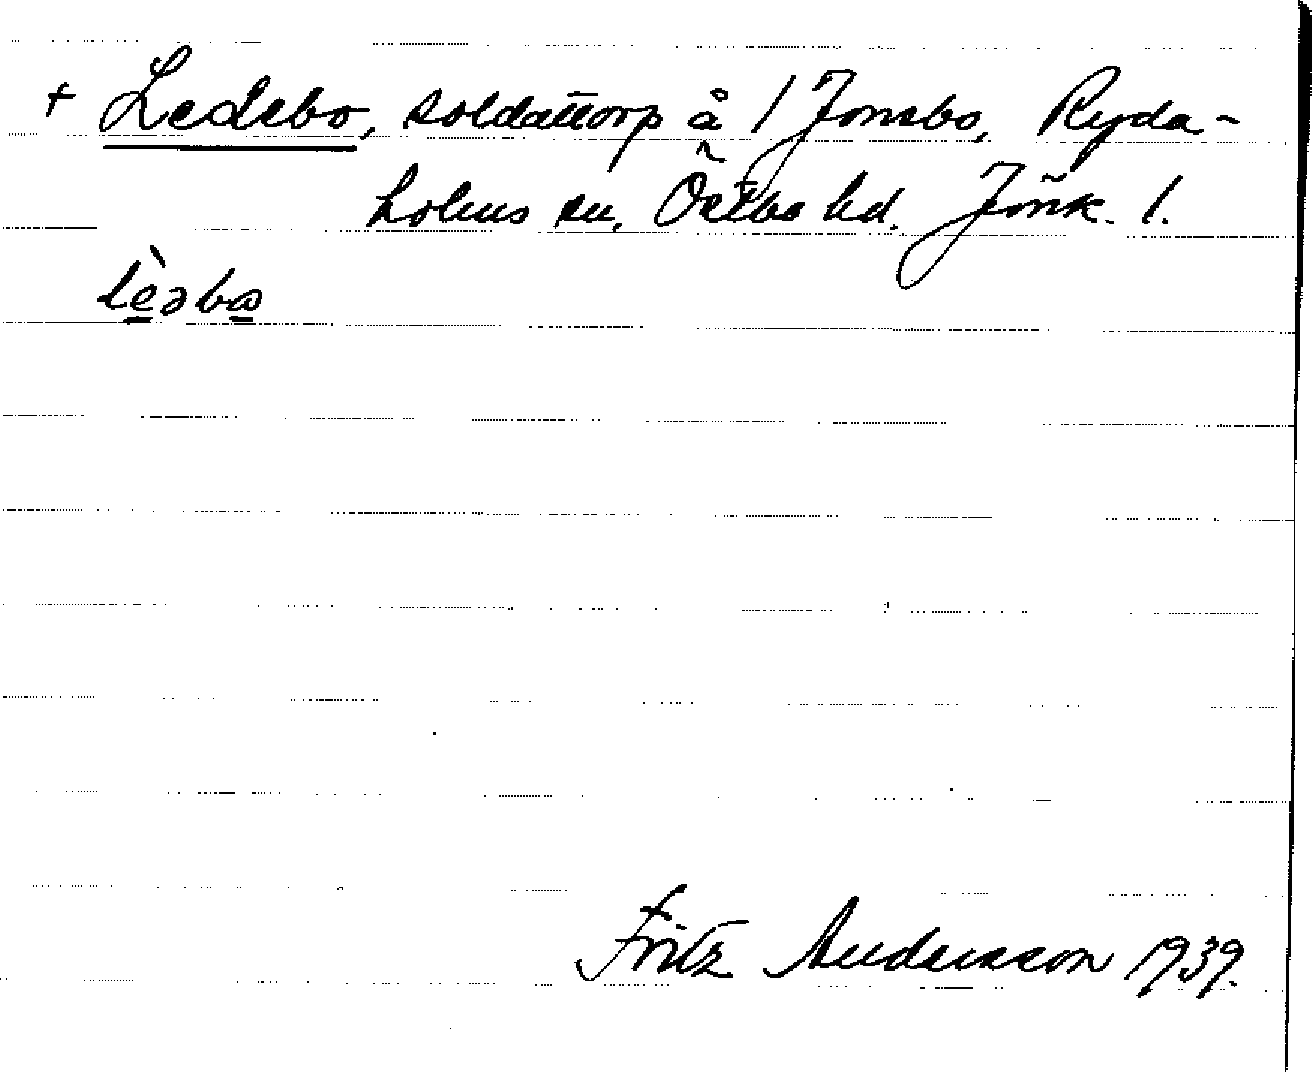 + Ledebo, soldattorp å 1 Jonsbo, Ryda-
holms sn, Östbo hd. Jönk. l.
lèəbo
Fritz Andersson 1939.